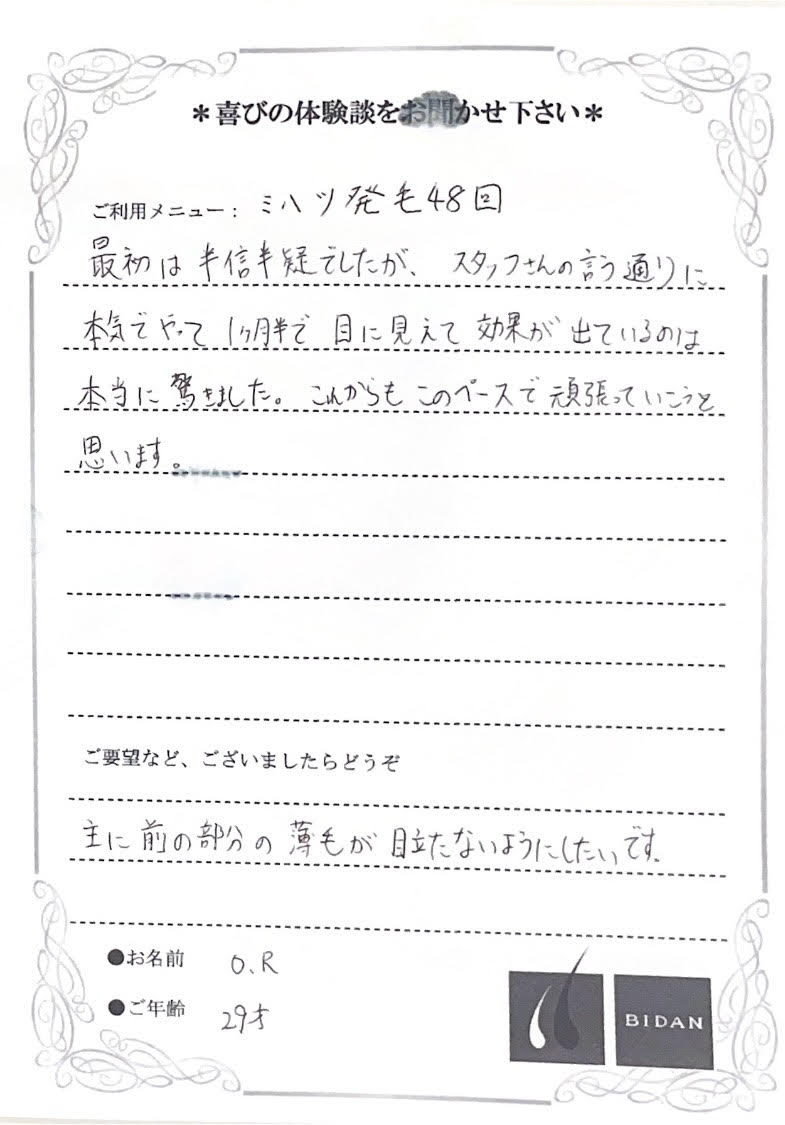 ＊喜びの体験談をお聞かせ下さい＊
ご利用メニュー：ミハツ発毛48回
最初は半信半疑でしたが、スタッフさんの言う通りに
本気でやって1ヶ月半で目に見えて効果が出ているのは
本当に驚きました。これからもこのペースで頑張っていこうと
思います。
ご要望など、ございましたらどうぞ
主に前の部分の薄毛が目立たないようにしたいです。
●お名前 O.R
●ご年齢 29才
BIDAN